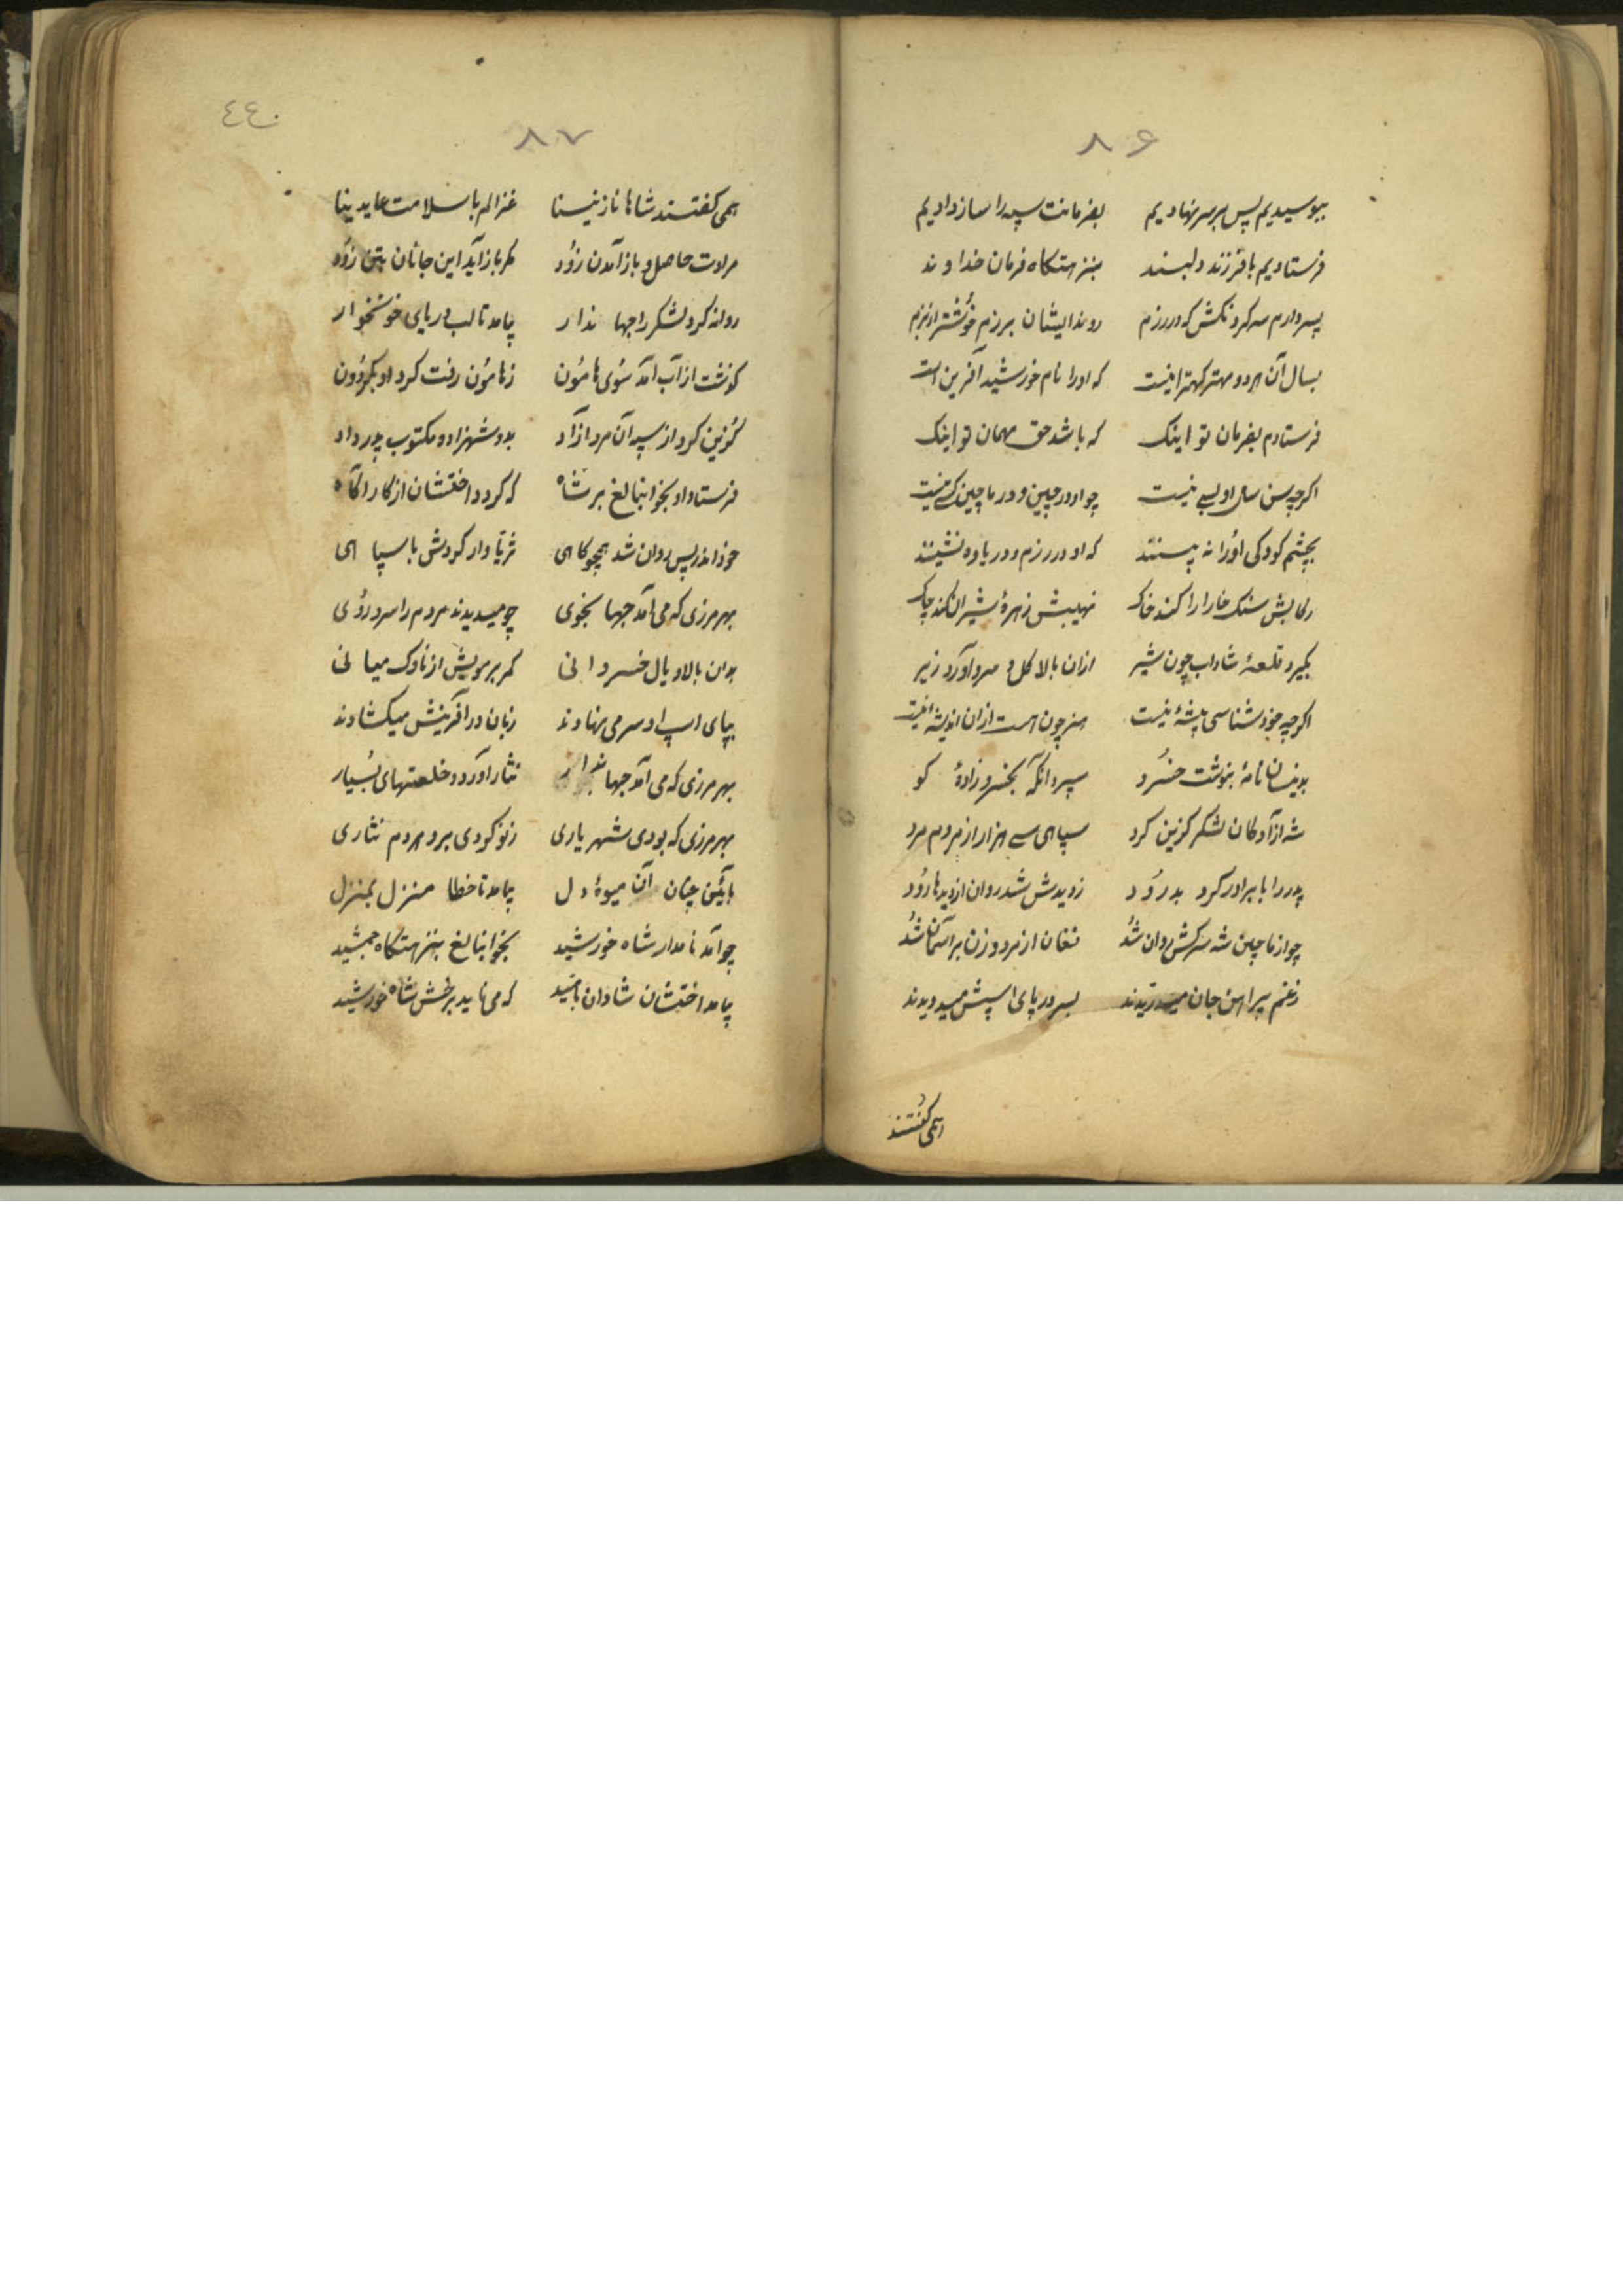 ٨۶
ببوسیدیم پس بر سر نهادیم بفرمانت سپه را ساز دادیم
فرستادیم با فرزند دلبند بنزهتکاه فرمان خداوند
پسر دارم سه کردنکش که در رزم روند ایشان برزم خوشتر از بزم
بسال آن هردو مهتر کهتر اینست که او را نام خورشید آفرین است
فرستادم بفرمان تو اینک که باشد حق مهمان تو اینک
اکرچه سن سال او بسی نیست چو او در چین و در ماچین کسی نیست
بچشم کودکی او را نه پسنتد که او در رزم و در یاوه نشینند
رکابش سنک خارا را کند خاک نهیبش زهرهٔ شیران کند چاک
بکیرد قلعهٔ شاداب چون شیر ازان بالا کل و سرو آورد زیر
اکرچه خود شناسی پیشهٔ نیست هنر چون هست ازان اندیشهٔ نیست
بدینسان نامهٔ بنوشت خسرو سپرد انکه بخسرو زادهٔ کو
شه از آدکان لشکر کزین کرد سپاهی سی هزار از مردم مرد
پدر را با برادر کرد بدرود ز دیدش شد روان از دیدها رود
چو از ماچین شه سرکش روان شد فغان از مرد و زن بر آسمان شد
ز غم پیراهن جان میدریدند بسر در پای اسپش میدویدند
همی کفتند
٤٤٠
٨٧
همی کفتند شاها نازنینا غزالم با سلامت عاید ینا
مرادت حاصل و باز آمدن زود مکر باز آید این جانان بتن زود
روانه کرد لشکر را جهاندار بیامد تا لب دریای خونخوار
کذشت از آب آمد سوی هامون ز هامون رفت کرد او بکردون
کزین کرد از سپه آن مرد آزاد بدو شهزاده مکتوب پدر داد
فرستاد او بخوابنالغ بر شاه که کردد اختشان از کار آکاه
خود اندر پس روان شد همچو کاهی ثریا وار کردش با سپاهی
بهر مرزی که می آمد جهانجوی چو میدیدند مردم را سر و روی
بدان بالا و یال خسروانی کمر بر مویش از ناوک میانی
بپای اسپ او سر می نهادند زبان در آفرینش میکشادند
بهر مرزی که می آمد جهاندار نثار آورد و خلعتهای بسیار
بهر مرزی که بودی شهریاری ز نو کردی برو مردم نثاری
بآئین چنان آن میوهٔ دل بیامد تا خطا منزل بمنزل
چو آمد نامدار شاه خورشید بخوابنالغ بنزهتکاه جمشید
بیامد اختشان شادان بامید که می تابد برخش شاه خورشید